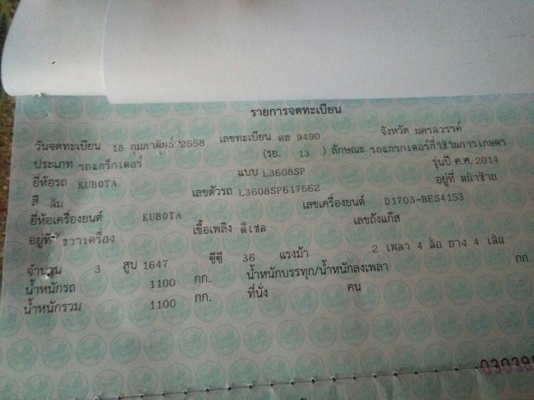 รายการจดทะเบียน
วันจดทะเบียน 18 กุมภาพันธ์ 2558 เลขทะเบียน ตค 9490 จังหวัด นครสวรรค์
ประเภท รถแทรกเตอร์ (รย. 13 ) ลักษณะ รถแทรกเตอร์ที่ใช้ในการเกษตร
ยี่ห้อรถ KUBOTA แบบ L3608SP รุ่นปี ค.ศ. 2014
สี ส้ม เลขตัวรถ L3608SP617662 อยู่ที่ หน้าซ้าย
ยี่ห้อเครื่องยนต์ KUBOTA เลขเครื่องยนต์ D1703-BES4153
อยู่ที่ ขวาเครื่อง เชื้อเพลิง ดีเซล เลขถังแก๊ส
จำนวน 3 สูบ 1647 ซีซี 36 แรงม้า 2 เพลา 4 ล้อ ยาง 4 เส้น
น้ำหนักรถ 1100 กก. น้ำหนักบรรทุก/น้ำหนักลงเพลา กก.
น้ำหนักรวม 1100 กก. ที่นั่ง คน